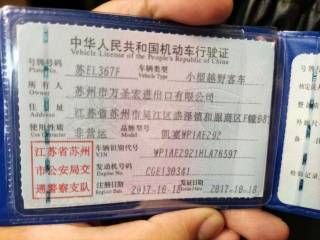 中华人民共和国机动车行驶证
Vehicle License of the People's Republic of China
号牌号码 苏E1367F 车辆类型 小型越野客车
Plate No. Vehicle Type
所有人 苏州市万圣宏进出口有限公司
Owner
住址 江苏省苏州市吴江区盛泽镇和服商区
Address
使用性质 非营运 品牌型号 凯宴WP1AE292
Use Character Model
江苏省苏州
市公安局交
通警察支队
车辆识别代号 WP1AE2921HLA76597
VIN
发动机号码 CGE130341
Engine No.
注册日期 2017-10-18 发证日期 2017-10-18
Register Date Issue Date